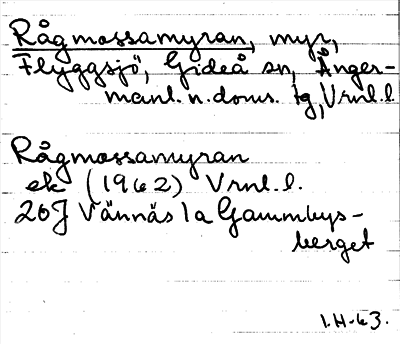 Rågmossamyran, myr,
Flyggsjö, Gideå sn, Ånger-
manl. n. doms. tg, Vrnl. l.
Rågmossamyran
ek (1962) Vrnl. l.
20J Vännäs 1a Gammbys-
berget
I.H-63.